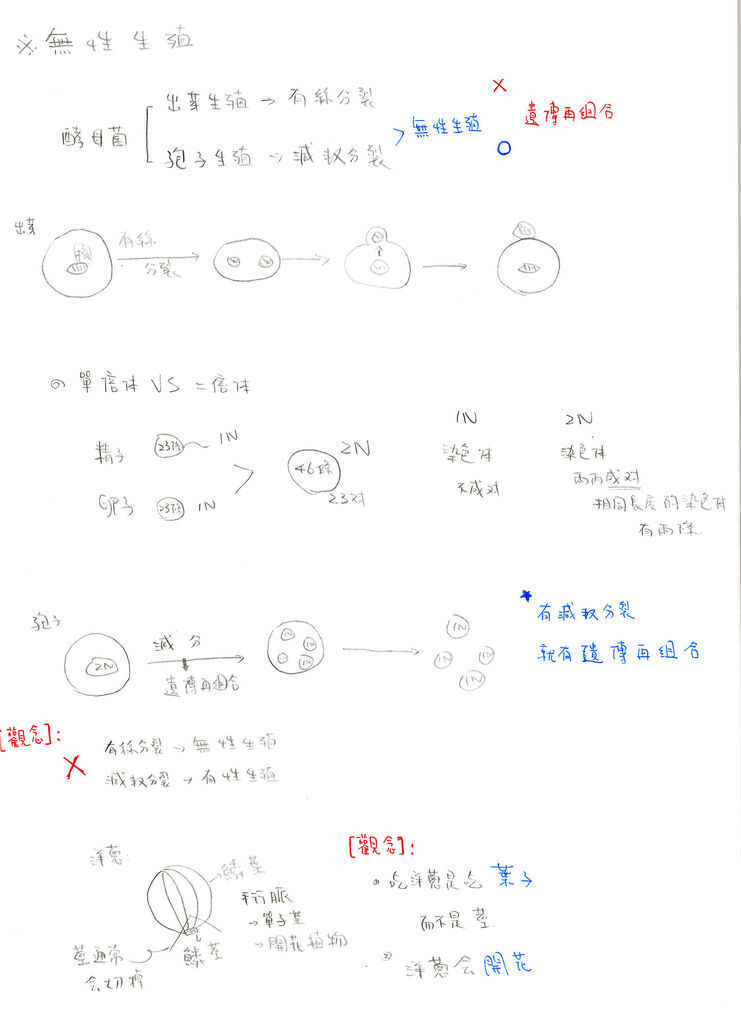 ※無性生殖
酵母菌
出芽生殖→有絲分裂
孢子生殖→減數分裂
>無性生殖
X
遺傳再組合
O
出芽
核
有絲
分裂
單倍体 VS 二倍体
精子 23條 1N
卵子 23條 1N
46條 2N
23对
1N
染色体
不成对
2N
染色体
兩兩成对
相同長度的染色体
有兩條
孢子
2N
減分
遺傳再組合
1N
1N
1N
1N
1N
1N
1N
★有減數分裂
就有遺傳再組合
[觀念]:
X
有絲分裂→無性生殖
減數分裂→有性生殖
洋蔥:
鱗葉
平行脈
→單子葉
→開花植物
鱗莖
莖通常
会切掉
[觀念]:
吃洋蔥是吃 葉子
而不是莖
洋蔥会開花